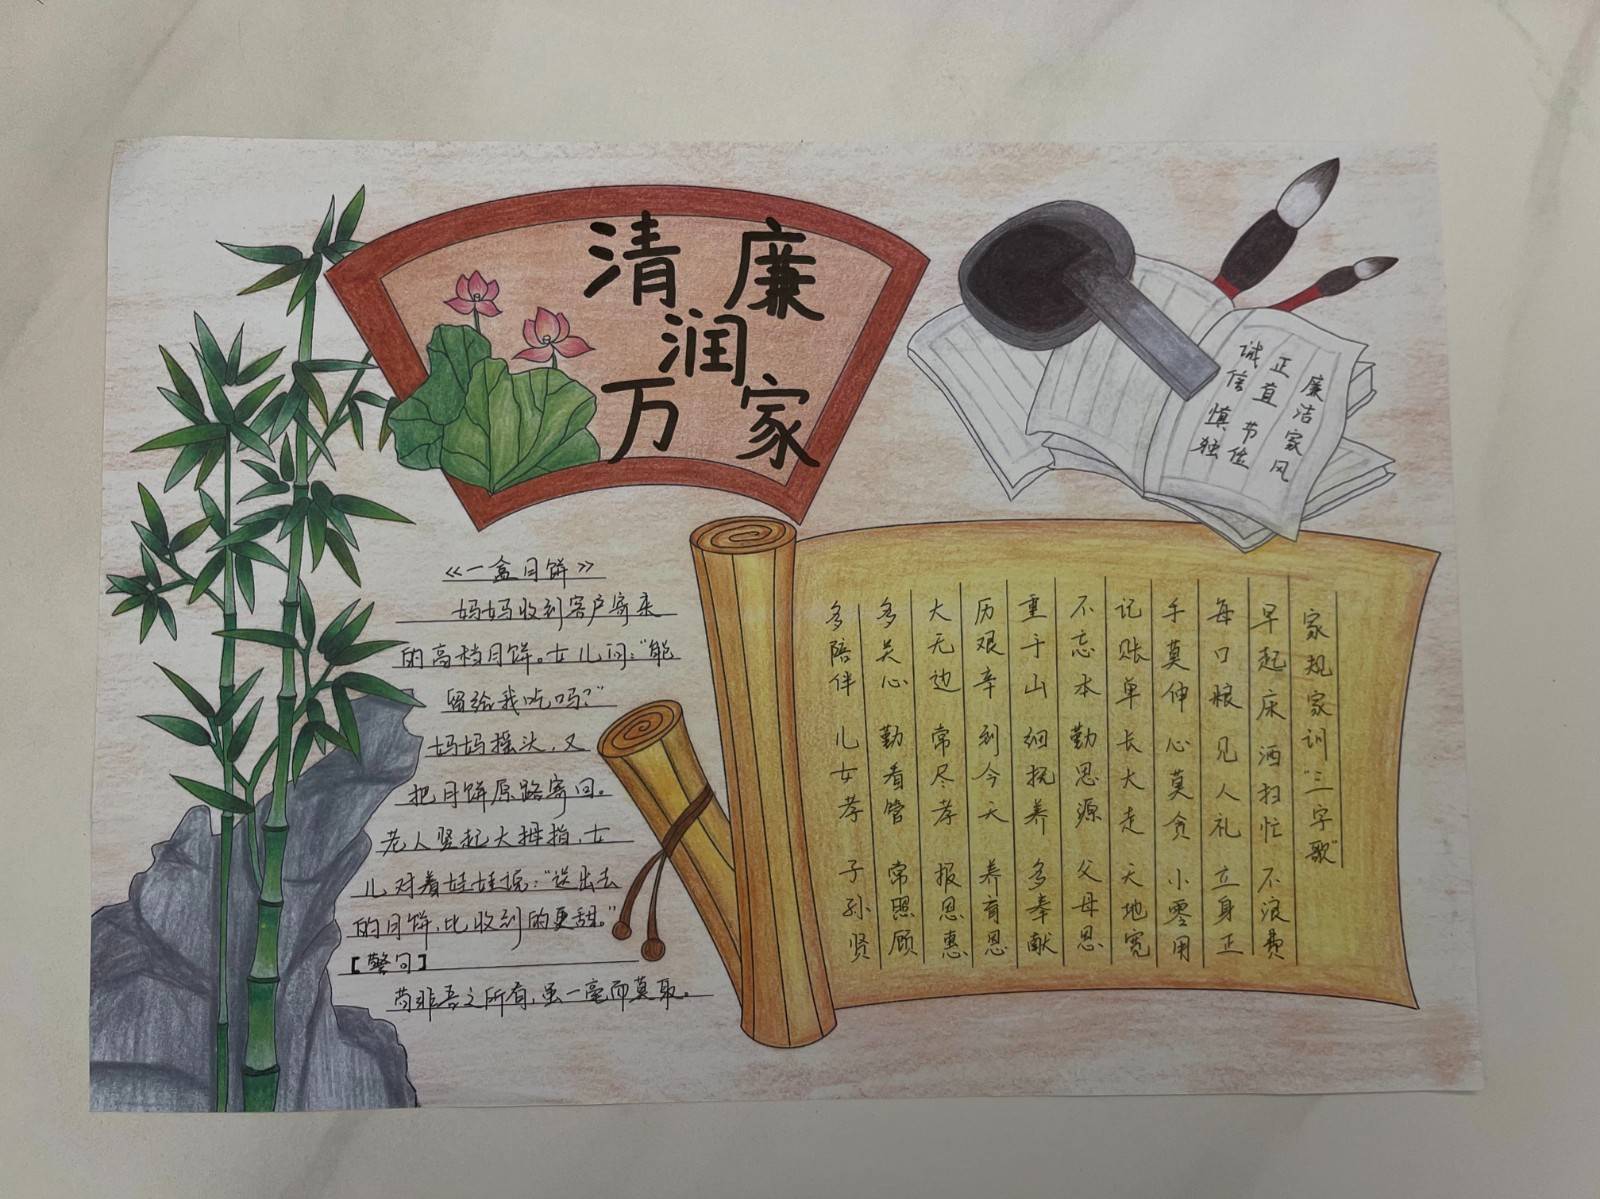 清廉
润
万家
廉洁家风
正直 节俭
诚信 慎独
《一盒月饼》
妈妈收到客户寄来
的高档月饼。女儿问:“能
留给我吃吗?”
妈妈摇头,又
把月饼原路寄回。
老人竖起大拇指,女
儿对着娃娃说:“送出去
的月饼,比收到的更甜。”
【警句】
苟非吾之所有,虽一毫而莫取。
家规家训“三字歌”
早起床 洒扫忙 不浪费
每口粮 见人礼 立身正
手莫伸 心莫贪 小零用
记账单 长大走 天地宽
不忘本 勤思源 父母恩
重于山 细抚养 多奉献
历艰辛 到今天 养育恩
大无边 常尽孝 报恩惠
多关心 勤看管 常照顾
多陪伴 儿女孝 子孙贤